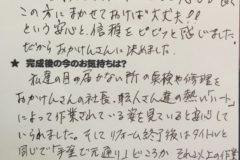 この方にまかせておけば大丈夫!!
という安心と、信頼をビビッと感じました。
だからおかけんさんに決めました。
★ 完成後の今のお気持ちは?
私達の目の届かない所の点検や修理を
おかけんさんの社長、職人さん達の熱い「ハート」
によって作業されている姿を見ていると安心して
いられました。そしてリフォーム終了後はタイトルと
同じで「予算で元通り」どころか それ以上の作業